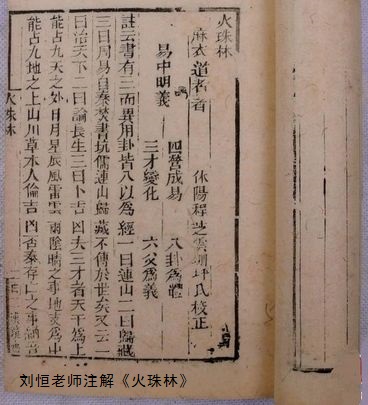 火珠林
麻衣道者著 休陽程芝雲 坪氏校正
四營成易 八卦為體
易中明義
三才變化 六爻為義
註云書有三而異用卦皆八以為經一曰連山二曰歸藏
三曰周易自秦焚書坑儒連山歸藏不傳於世矣又云一
曰治天下二曰論長生三曰卜吉凶夫三才者天為上
能占九天之外日月星辰風雷雲雨陰晴之事地 為中
能占九地之上山川草木人倫吉凶否泰存亡之事
火珠林
刘恒老师注解《火珠林》